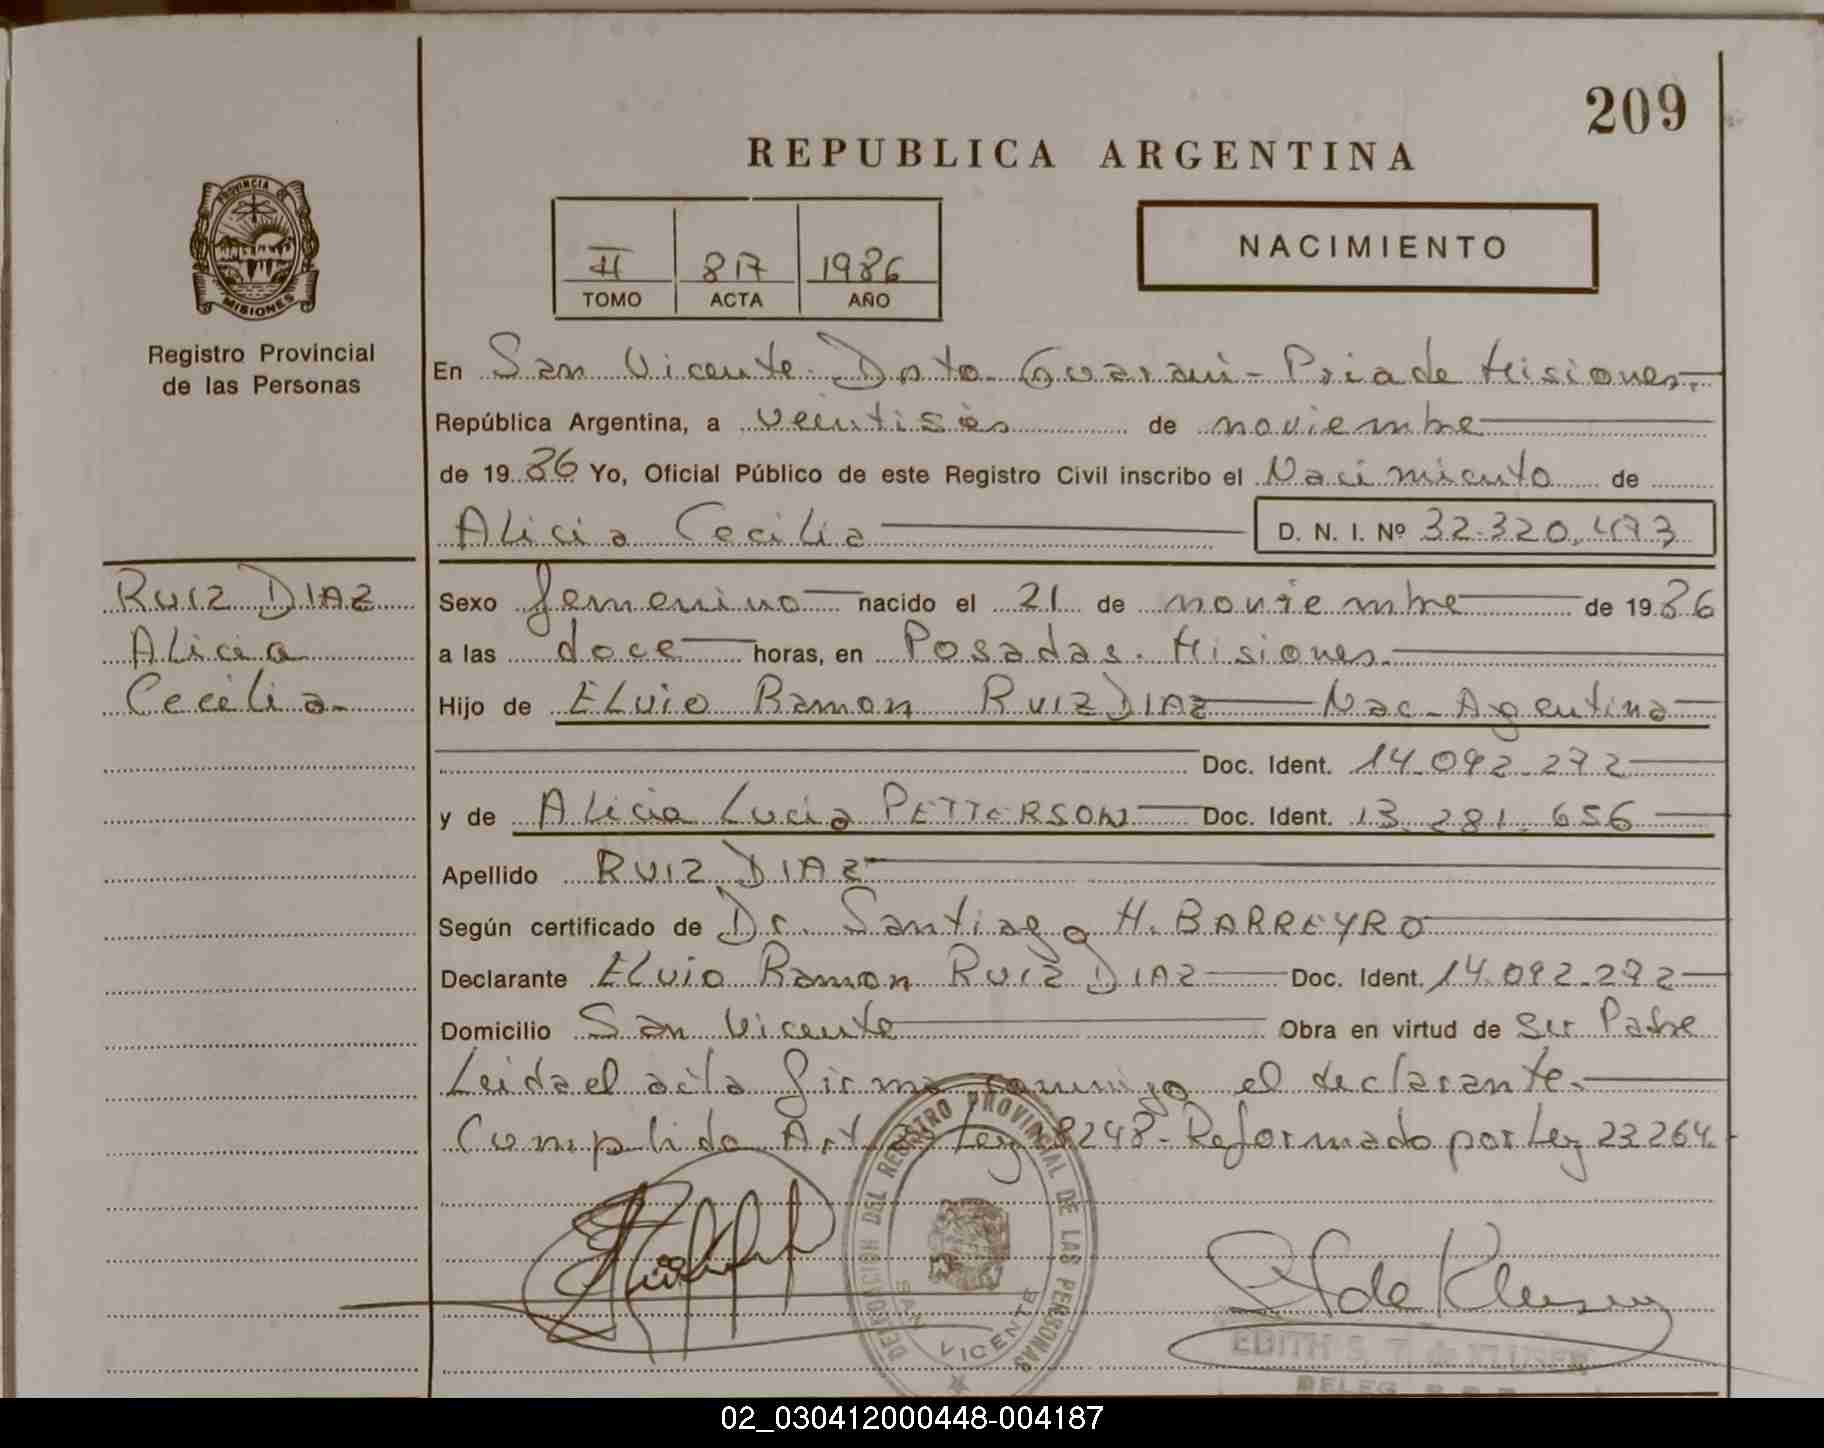 209
REPUBLICA ARGENTINA
PROVINCIA DE
MISIONES
Registro Provincial
de las Personas
II 817 1986
TOMO ACTA AÑO
NACIMIENTO
En San Vicente - Dpto Guaraní - Pcia de Misiones.
República Argentina, a veintiséis de noviembre
de 19 86 Yo, Oficial Público de este Registro Civil inscribo el Nacimiento de
Alicia Cecilia D. N. I. Nº 32.320.473
RUIZ DIAZ
Alicia
Cecilia
Sexo femenino nacido el 21 de noviembre de 19 86
a las doce horas, en Posadas. Misiones.
Hijo de Elvio Ramon RUIZ DIAZ Nac - Agentina
Doc. Ident. 14.092.272
y de Alicia Lucia PETTERSON Doc. Ident. 13.281.656
Apellido RUIZ DIAZ
Según certificado de Dr. Santiago H. BARREYRO
Declarante Elvio Ramon RUIZ DIAZ Doc. Ident. 14.092.272
Domicilio San Vicente Obra en virtud de ser Padre
Leida el acta firma conmigo el declarante.
Cumplido Art. Ley 18248 - Reformado por Ley 23264.
DELEGACION DEL REGISTRO PROVINCIAL DE LAS PERSONAS
SAN VICENTE
E T de Kluser
EDITH S. T. de KLUSER
DELEG. R. P. P.
02_030412000448-004187